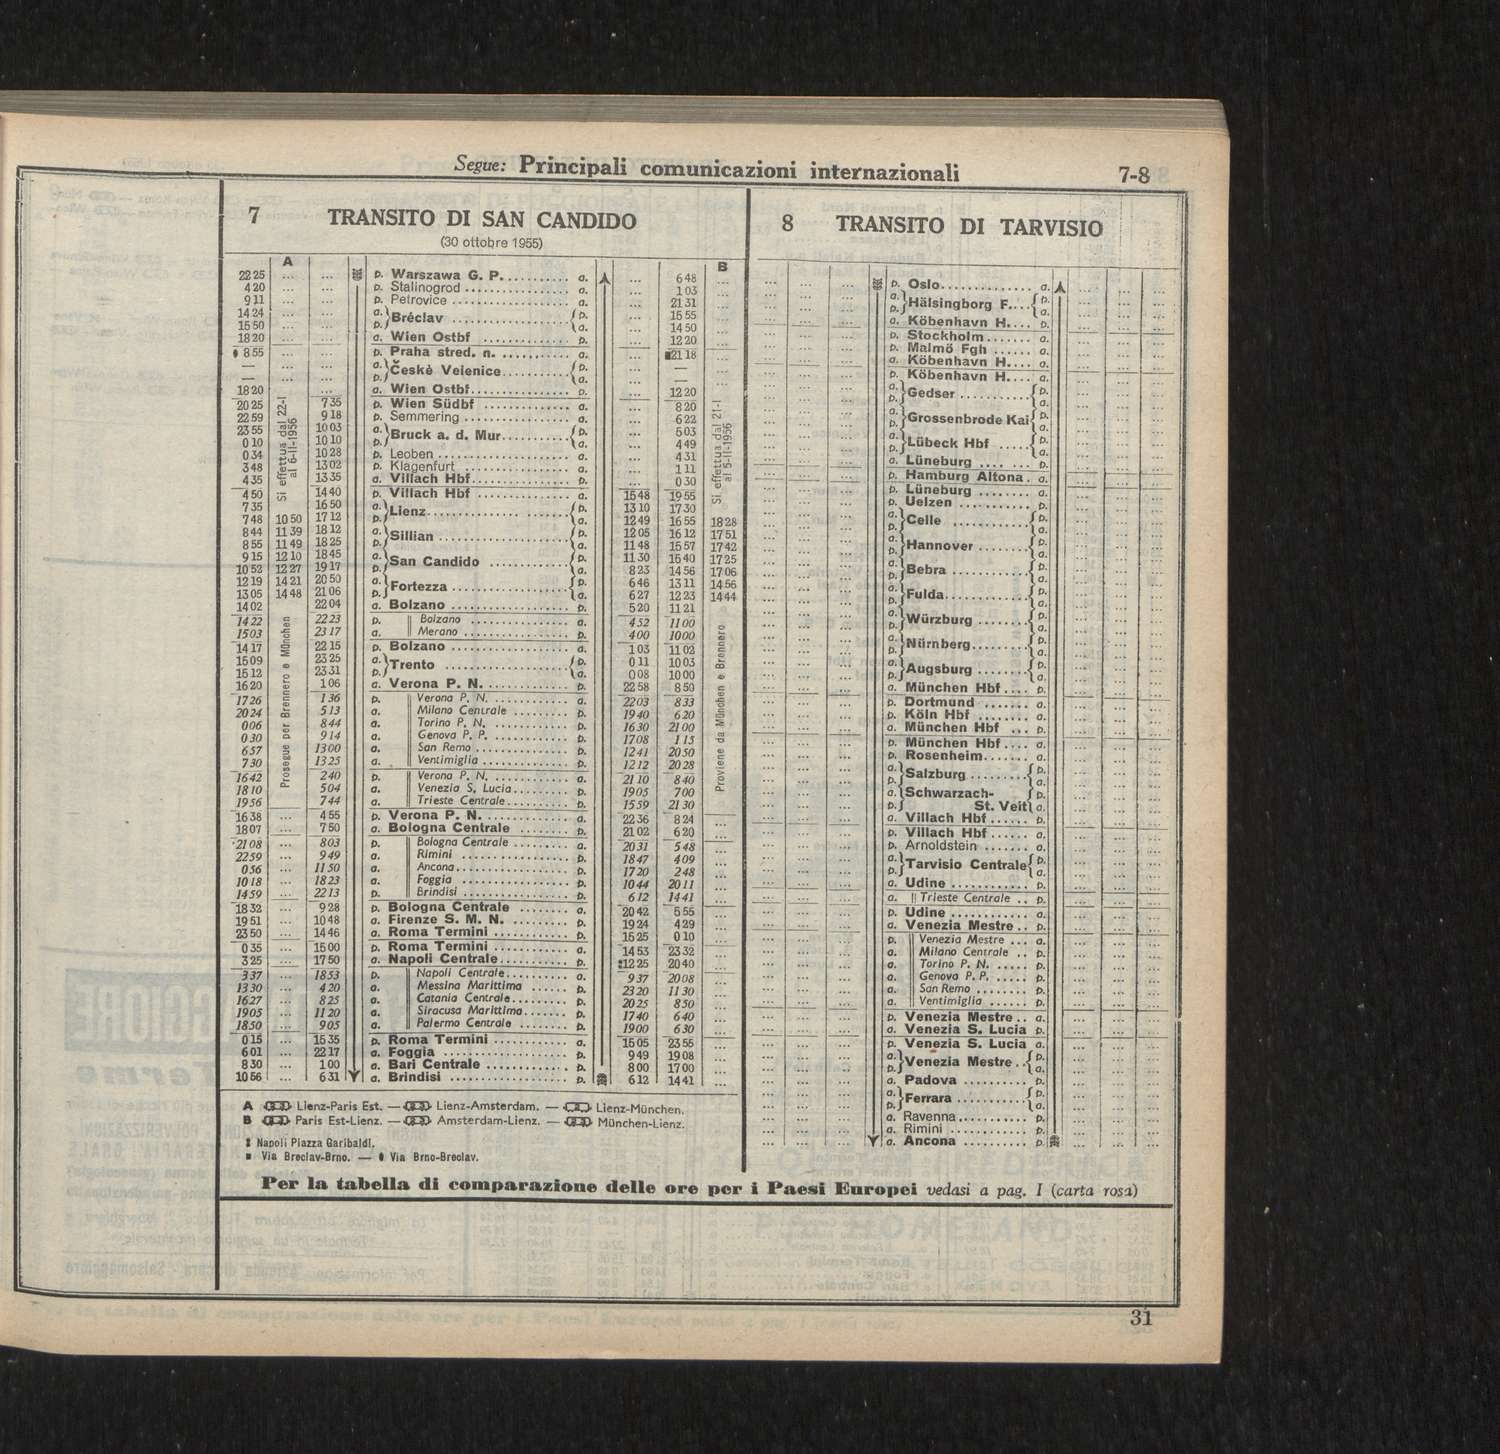 Segue: Principali comunicazioni internazionali 7-8
7 TRANSITO DI SAN CANDIDO
(30 ottobre 1955)
A B
22 25 ... ... p. Warszawa G. P. a. ... 6 48 ...
4 20 ... ... p. Stalinogrod a. ... 1 03 ...
9 11 ... ... p. Petrovice a. ... 21 31 ...
14 24 ... ... a. Bréclav p. ... 15 55 ...
15 50 ... ... p. a. ... 14 50 ...
18 20 ... ... a. Wien Ostbf p. ... 12 20 ...
8 55 ... ... p. Praha stred. n. a. ... ■21 18 ...
— ... ... a. Českè Velenice p. ... — ...
— ... ... p. a. ... — ...
18 20 ... a. Wien Ostbf p. 12 20
20 25 7 35 p. Wien Südbf a. ... 8 20
22 59 9 18 p. Semmering a. ... 6 22
23 55 10 03 a. Bruck a. d. Mur p. ... 5 03
0 10 10 10 p. a. ... 4 49
0 34 10 28 p. Leoben a. ... 4 31
3 48 13 02 p. Klagenfurt a. ... 1 11
4 35 13 35 a. Villach Hbf p. ... 0 30
Si effettua dal 22-I al 6-II-1956
Si effettua dal 21-I al 5-II-1956
4 50 14 40 p. Villach Hbf a. 15 48 19 55
7 35 16 50 a. Lienz p. 13 10 17 30
7 48 10 50 17 12 p. a. 12 49 16 55 18 28
8 44 11 39 18 12 a. Sillian p. 12 05 16 12 17 51
8 55 11 49 18 25 p. a. 11 48 15 57 17 42
9 15 12 10 18 45 a. San Candido p. 11 30 15 40 17 25
10 52 12 27 19 17 p. a. 8 23 14 56 17 06
12 19 14 21 20 50 a. Fortezza p. 6 46 13 11 14 56
13 05 14 48 21 06 p. a. 6 27 12 23 14 44
14 02 22 04 a. Bolzano p. 5 20 11 21
14 22 22 23 p. Bolzano a. 4 52 11 00
15 03 23 17 a. Merano p. 4 00 10 00
14 17 22 15 p. Bolzano a. 1 03 11 02
15 09 23 25 a. Trento p. 0 11 10 03
15 12 23 31 p. a. 0 08 10 00
16 20 1 06 a. Verona P. N. p. 22 58 8 50
17 26 1 36 p. Verona P. N. a. 22 03 8 33
20 24 5 13 a. Milano Centrale p. 19 40 6 20
0 06 8 44 a. Torino P. N. p. 16 30 21 00
0 30 9 14 a. Genova P. P. p. 17 08 1 15
6 57 13 00 a. San Remo p. 12 41 20 50
7 30 13 25 a. Ventimiglia p. 12 12 20 28
16 42 2 40 p. Verona P. N. a. 21 10 8 40
18 10 5 04 a. Venezia S. Lucia p. 19 05 7 00
19 56 7 44 a. Trieste Centrale p. 15 59 21 30
Prosegue per Brennero e München
Proviene da München e Brennero
16 38 ... 4 55 p. Verona P. N. a. 22 36 8 24 ...
18 07 ... 7 50 a. Bologna Centrale p. 21 02 6 20 ...
21 08 ... 8 03 p. Bologna Centrale a. 20 31 5 48 ...
22 59 ... 9 49 a. Rimini p. 18 47 4 09 ...
0 56 ... 11 50 a. Ancona p. 17 20 2 48 ...
10 18 ... 18 23 a. Foggia p. 10 44 20 11 ...
14 59 ... 22 13 p. Brindisi p. 6 12 14 41 ...
18 32 ... 9 28 p. Bologna Centrale a. 20 42 5 55 ...
19 51 ... 10 48 a. Firenze S. M. N. p. 19 24 4 29 ...
23 50 ... 14 46 a. Roma Termini p. 15 25 0 10 ...
0 35 ... 15 00 p. Roma Termini a. 14 53 23 32 ...
3 25 ... 17 50 a. Napoli Centrale p. 12 25 20 40 ...
3 37 ... 18 53 p. Napoli Centrale a. 9 37 20 08 ...
13 30 ... 4 20 a. Messina Marittima p. 23 20 11 30 ...
16 27 ... 8 25 a. Catania Centrale p. 20 25 8 50 ...
19 05 ... 11 20 a. Siracusa Marittima p. 17 40 6 40 ...
18 50 ... 9 05 a. Palermo Centrale p. 19 00 6 30 ...
0 15 ... 15 35 p. Roma Termini a. 15 05 23 55 ...
6 01 ... 22 17 a. Foggia p. 9 49 19 08 ...
8 30 ... 1 00 a. Bari Centrale p. 8 00 17 00 ...
10 56 ... 6 31 a. Brindisi p. 6 12 14 41 ...
A Lienz-Paris Est. — Lienz-Amsterdam. — Lienz-München.
B Paris Est-Lienz. — Amsterdam-Lienz. — München-Lienz.
Napoli Piazza Garibaldi.
■ Via Breclav-Brno. — Via Brno-Breclav.
8 TRANSITO DI TARVISIO
p. Oslo a.
a. p. Hälsingborg F. p. a.
a. Köbenhavn H. p.
p. Stockholm a.
p. Malmö Fgh a.
a. Köbenhavn H. p.
p. Köbenhavn H. a.
a. p. Gedser p. a.
a. p. Grossenbrode Kai p. a.
a. p. Lübeck Hbf p. a.
a. Lüneburg p.
p. Hamburg Altona a.
p. Lüneburg a.
p. Uelzen a.
a. p. Celle p. a.
a. p. Hannover p. a.
a. p. Bebra p. a.
a. p. Fulda p. a.
a. p. Würzburg p. a.
a. p. Nürnberg p. a.
a. p. Augsburg p. a.
a. München Hbf p.
p. Dortmund a.
p. Köln Hbf a.
a. München Hbf p.
p. München Hbf a.
p. Rosenheim a.
a. p. Salzburg p. a.
a. Schwarzach- p.
p. St. Veit a.
a. Villach Hbf p.
p. Villach Hbf a.
p. Arnoldstein a.
a. p. Tarvisio Centrale p. a.
a. Udine p.
a. Trieste Centrale p.
p. Udine a.
a. Venezia Mestre p.
p. Venezia Mestre a.
a. Milano Centrale p.
a. Torino P. N. p.
a. Genova P. P. p.
a. San Remo p.
a. Ventimiglia p.
p. Venezia Mestre a.
a. Venezia S. Lucia p.
p. Venezia S. Lucia a.
a. p. Venezia Mestre p. a.
a. Padova p.
a. p. Ferrara p. a.
a. Ravenna p.
a. Rimini p.
a. Ancona p.
Per la tabella di comparazione delle ore per i Paesi Europei vedasi a pag. I (carta rosa)
31